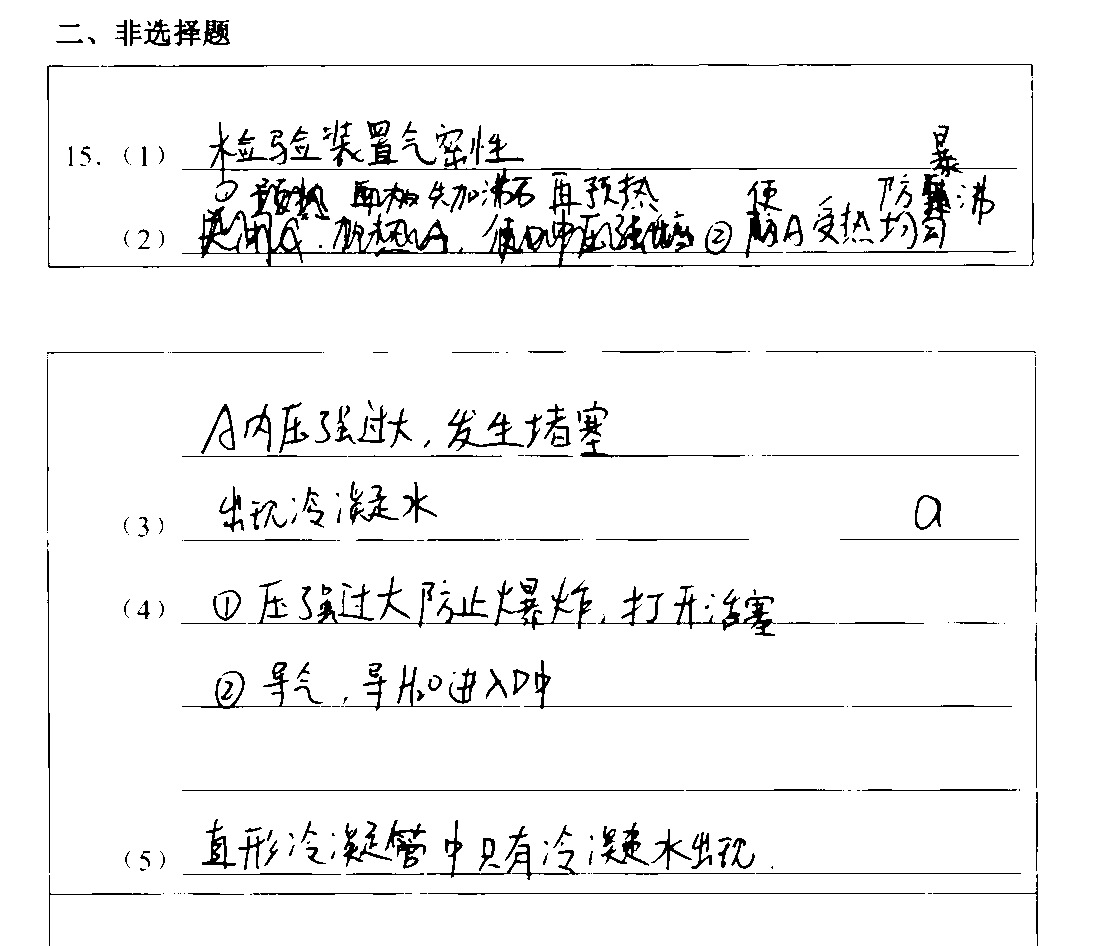 二、非选择题
15.（1） 检验装置气密性
① 预热 先加沸石再预热 使 防暴沸
（2） ② A受热均匀
A内压强过大，发生堵塞
（3） 出现冷凝水 a
（4） ①压强过大防止爆炸，打开活塞
②导气，导H₂O进入D中
（5） 直形冷凝管中只有冷凝水出现.